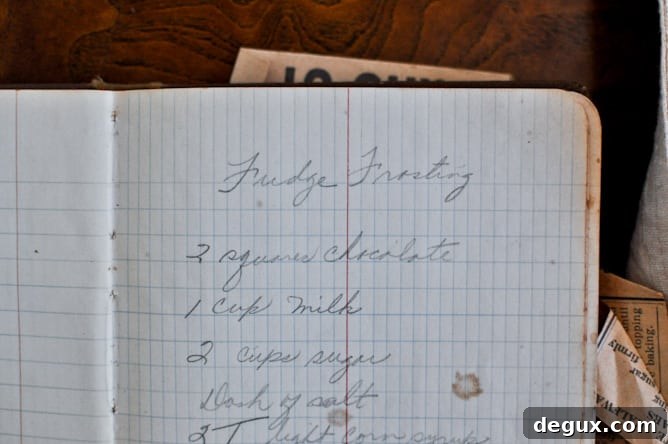 Fudge Frosting
2 squares chocolate
1 cup milk
2 cups sugar
Dash of salt
2 T light corn syrup
until
topping
baking.
sugar
firmly
degux.com